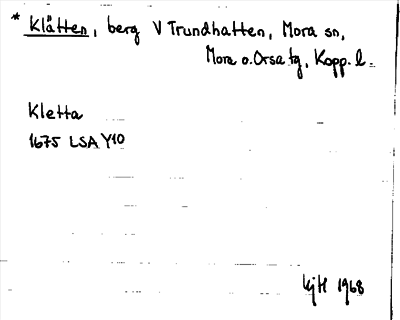 * Klåtten, berg V Trundhatten, Mora sn,
Mora o. Orsa tg, Kopp. l.
Kletta
1675 LSA Y10
1968